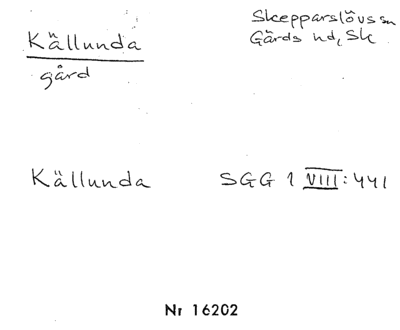 Källunda
gård
Skepparslövs sn
Gärds hd, Sk
Källunda
SGG 1 VIII:441
Nr 16202